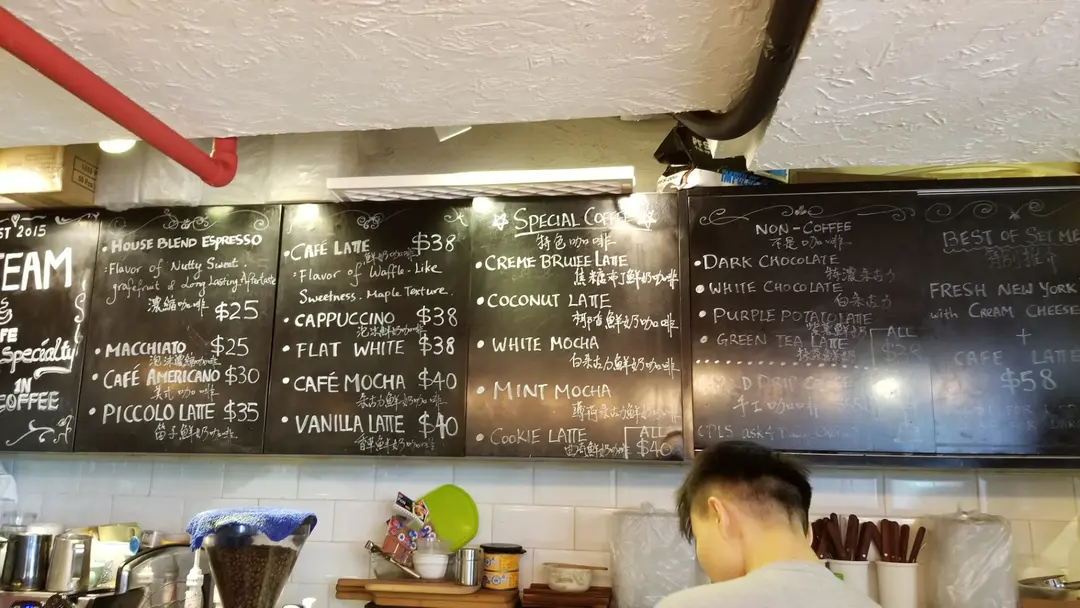 ST 2015
TEAM
FE
Specialty
IN
COFFEE
• HOUSE BLEND ESPRESSO
: Flavor of Nutty Sweet.
grapefruit & Long Lasting Aftertaste
濃縮咖啡 $25
• MACCHIATO $25
泡沫濃縮咖啡
• CAFÉ AMERICANO $30
美式咖啡
• PICCOLO LATTE $35
笛子鮮奶咖啡
• CAFÉ LATTE $38
鮮奶咖啡
: Flavor of Waffle-Like
Sweetness. Maple Texture.
• CAPPUCCINO $38
泡沫鮮奶咖啡
• FLAT WHITE $38
• CAFÉ MOCHA $40
朱古力鮮奶咖啡
• VANILLA LATTE $40
香草鮮奶咖啡
SPECIAL COFFEE
特色咖啡
• CREME BRULEE LATTE
焦糖布丁鮮奶咖啡
• COCONUT LATTE
椰香鮮奶咖啡
• WHITE MOCHA
白朱古力鮮奶咖啡
• MINT MOCHA
薄荷朱古力鮮奶咖啡
• COOKIE LATTE
曲奇鮮奶咖啡
ALL
$40
NON-COFFEE
不是咖啡
• DARK CHOCOLATE
特濃朱古力
• WHITE CHOCOLATE
白朱古力
• PURPLE POTATOLATTE
紫薯鮮奶
• GREEN TEA LATTE
抹茶鮮奶
ALL
DRIP COFFEE
手工咖啡
BEST OF SET ME
特別推介
FRESH NEW YORK
with CREAM CHEESE
+
CAFE LATTE
$58